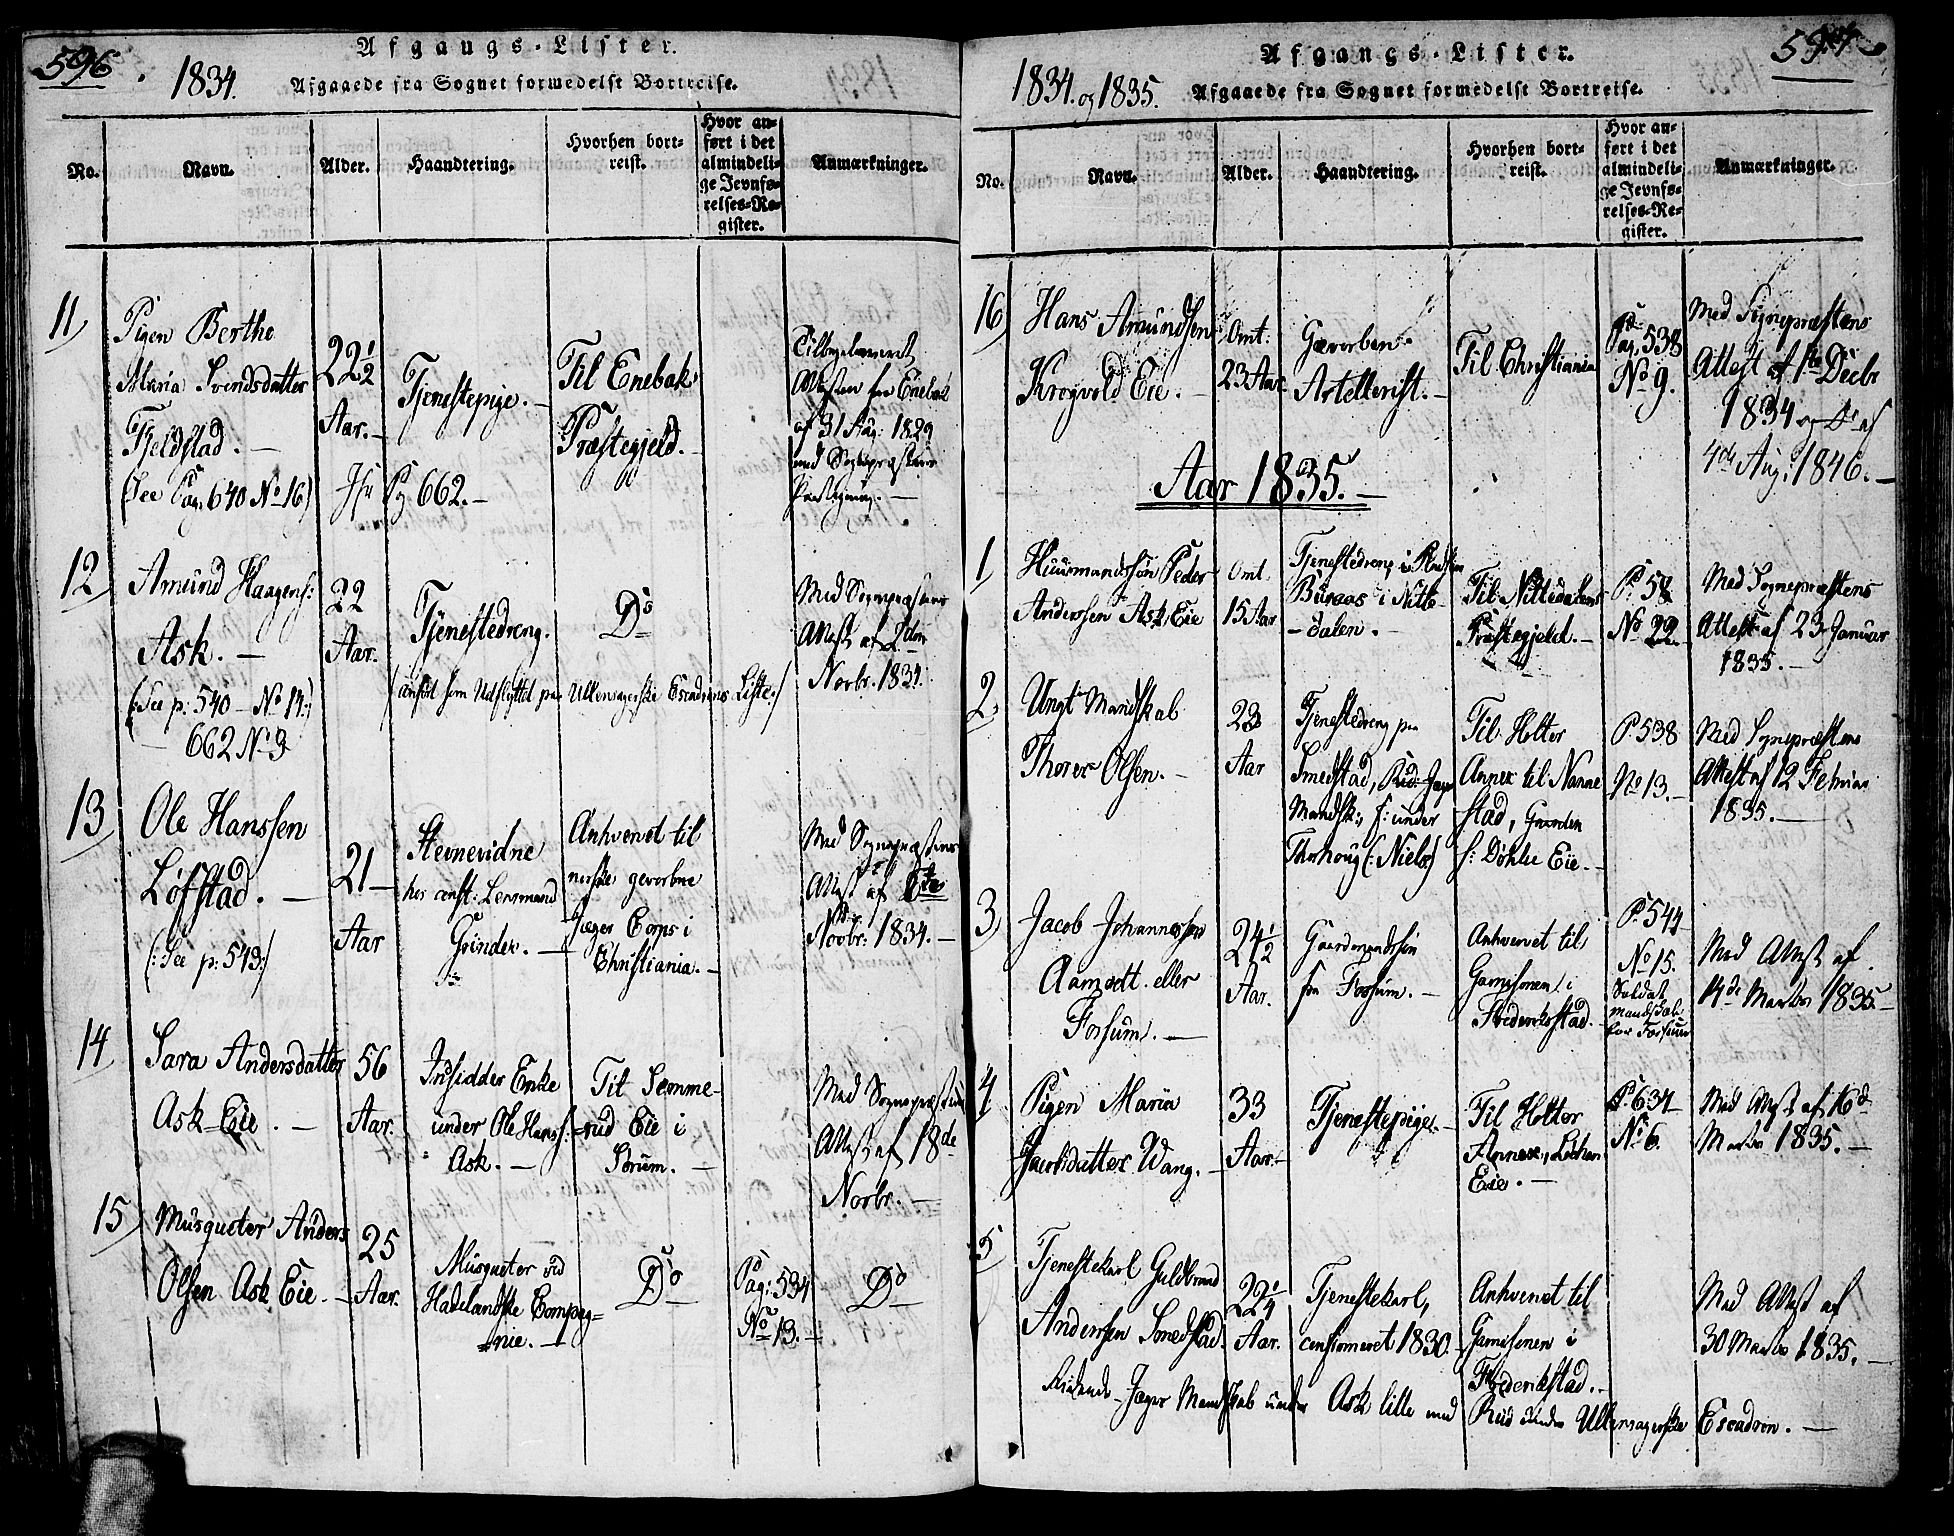 596.
Afgangs-Lister.
1834.
Afgaaede fra Sognet formedelst Bortreise.
No.
Navn.
Alder.
Haandtering.
Hvorhen bort-
reist.
Hvor an-
ført i det
almindeli-
ge Jevnfø-
relses-Re-
gister.
Anmærkninger.
11
Pigen Berthe
Maria Svendsdatter
Fjeldstad. -
(See Pag. 640 No 16)
22 1/2
Aar. -
Jfr Pg 662. -
Tjenestepige. -
Til Enebak
Præstegjeld. -
Attesten fra Enebak
af 31 Aug: 1829
med Sognepræstens
12
Amund Haagens:
Ask. -
(:See p: 540 - No 14:)
662 No 9
22
Aar.
Tjenestedreng.
Do
(anført som Udflyttet paa Ullensagerske Esqadrons Liste:/)
Med Sognepræstens
Attest af
Novbr. 1834.
13
Ole Hanssen
Løfstad. -
(:See p: 543:)
21 -
Aar
Stevnevidne
hos const: Lensmand
Grinder. -
Anhvervet til
norske gevorbne
Jæger Corps i
Christiania. -
Med Sognepræstens
Attest af
Novbr: 1834. -
14
Sara Andersdatter
Ask Eie. -
56
Aar.
Indsidder Enke
under Ole Hanss:
Ask. -
Til Semme-
rud Eie i
Sørum. -
Med Sognepræstens
Attest af 18de
Novbr. -
15
Musqueter Anders
Olsen Ask Eie. -
25
Aar.
Musqueter ved
Hadelandske Compag-
nie. -
Do
Pag: 534
No 13. -
Do
597
Afgangs-Lister.
1834. og 1835.
Afgaaede fra Sognet formedelst Bortreise.
No.
Navn.
Alder.
Haandtering.
Hvorhen bort-
reist.
Hvor an-
ført i det
almindeli-
ge Jevnfø-
relses-Re-
gister.
Anmærkninger.
16
Hans Amundsen
Krogvold Eie. -
Omt:
23 Aar.
Gevorben
Artellerist. -
Til Christiania
Pag. 538
No 9.
Med Sognepræstens
Attest af 1ste Decbr
1834 og Do af
4de Aug: 1846. -
Aar 1835. -
1
Huusmandssøn Peder
Anderssen Ask Eie
Omt.
15 Aar
Tjenestedreng i
Buraas i Nitte-
-dalen. -
Til Nittedalens
Præstegjeld. -
P. 58
No 22. -
Med Sognepræstens
Attest af 23 Januar
1835. -
2
Ungt Mandskab
Thorer Olsen. -
23
Aar
Tjenestedreng paa
Smedstad, Rid: Jæger
Mandsk:, f: under
Thorhoug (: Niels)
Til Holter
Annex til Nanne
stad, Grinden
f: Døhlie Eie. -
P. 538
No 13. -
Med Sognepræstens
Attest af 12 Februar
1835. -
3
Jacob Johannessen
Aamodt eller
Forsum. -
24 1/2
Aar.
Gaardmandssøn
fra Forsum. -
Anhvervet til
Garnisonen i
Frederiksstad. -
P. 544
No 15.
Soldat
mandskab
for Forsum
Med Attest af
14de Marts 1835. -
4
Pigen Maria
Jacobsdatter Wang. -
33
Aar. -
Tjenestepige. -
Til Holter
Annex,
Eie. -
P. 634
No 6.
Med Attest af 16de
Marts 1835. -
5
Tjenestekarl Guldbrand
Anderssen Smedstad.
22 1/4
Aar.
Tjenestekarl,
confirmeret 1830. -
Anhvervet til
Garnisonen i
Frederikstad. -
Med Attest af
30 Marts 1835. -
Ridende Jæger Mandskab under Ask lille med Rud under Ullensagerske Esqadron. -